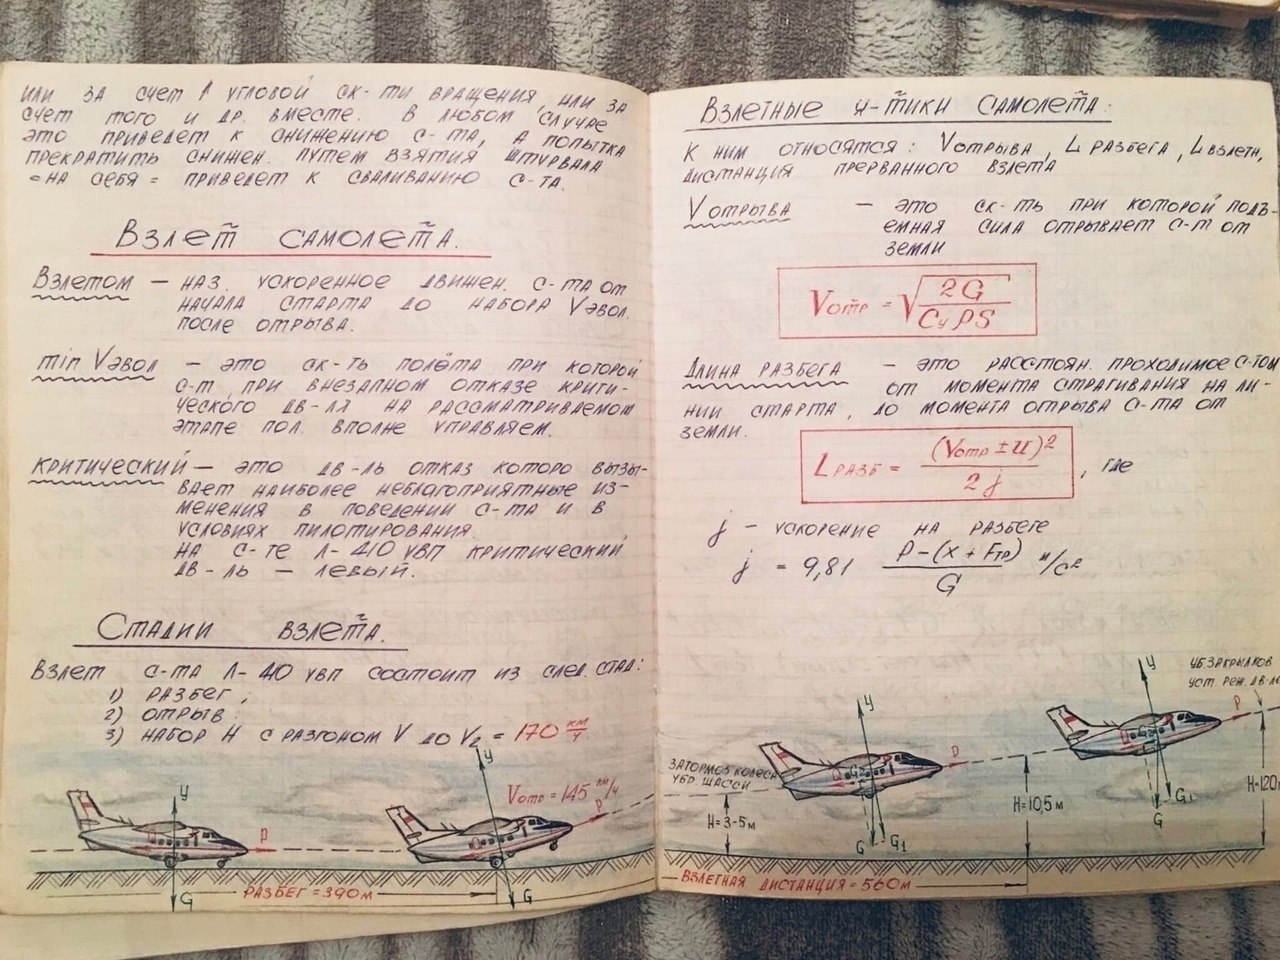 или за счет ↑ угловой ск-ти вращения, или за
счет того и др. вместе. В любом случае
это приведет к снижению с-та, а попытка
прекратить снижен. путем взятия штурвала
=на себя= приведет к сваливанию с-та.
Взлет самолета.
Взлетом — наз. ускоренное движен. с-та от
начала старта до набора Vэвол.
после отрыва.
min Vэвол — это ск-ть полёта при которой
с-т при внезапном отказе крити-
ческого дв-ля на рассматриваемом
этапе пол. вполне управляем.
Критический — это дв-ль отказ которо вызы-
вает наиболее неблагоприятные из-
менения в поведении с-та и в
условиях пилотирования.
На с-те Л-410 увп критический
дв-ль — левый.
Стадии взлета.
Взлет с-та Л-410 увп состоит из след. стад:
1) разбег;
2) отрыв;
3) набор H с разгоном V до V₂ = 170 км/ч
У
P
G
Разбег = 390м
У
Vотр = 145 км/ч
P
G
Взлетные х-тики самолета:
К ним относятся: Vотрыва, L разбега, L взлетн,
дистанция прерванного взлета
V отрыва — это ск-ть при которой подъ-
емная сила отрывает с-т от
земли
Vотр = √(2G / CуρS)
Длина разбега — это расстоян. проходимое с-том
от момента страгивания на ли-
нии старта, до момента отрыва с-та от
земли.
Lразб = (Vотр ± U)² / 2j , где
j — ускорение на разбеге
j = 9,81 P-(x + Fтр) / G м/с²
Затормоз колеса
убр. шасси
H=3-5м
У
Q
G₂
P
G
G₁
H=10,5м
Взлетная дистанция = 560м
уб закрылков
уст. реж. дв-ле
У
Q
G₂
P
G₁
G
H=120м